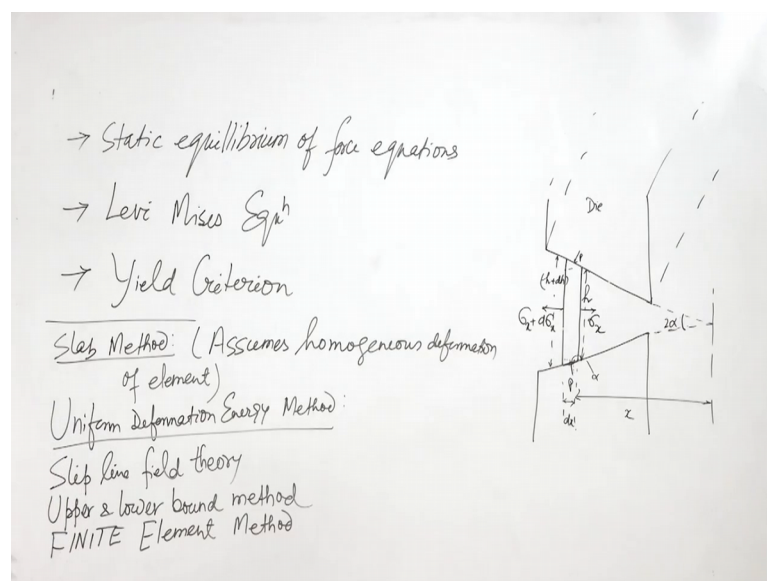 → Static equillibrium of force equations
→ Levi Mises Eqⁿ
→ Yield Criterion
Slab Method: (Assumes homogeneous deformation
of element)
Uniform Deformation Energy Method:
Slip line field theory
Upper & lower bound method
FINITE Element Method
Die
P
(h+dh)
h
σx+dσx
σx
2α
P
α
dx
x